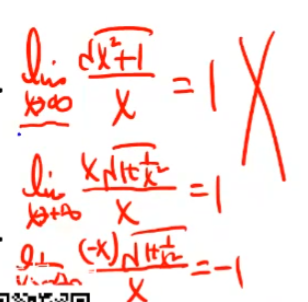 lim x→∞ √(x²+1) / x = 1 X
lim x→+∞ x√(1+1/x²) / x = 1
lim x→-∞ (-x)√(1+1/x²) / x = -1